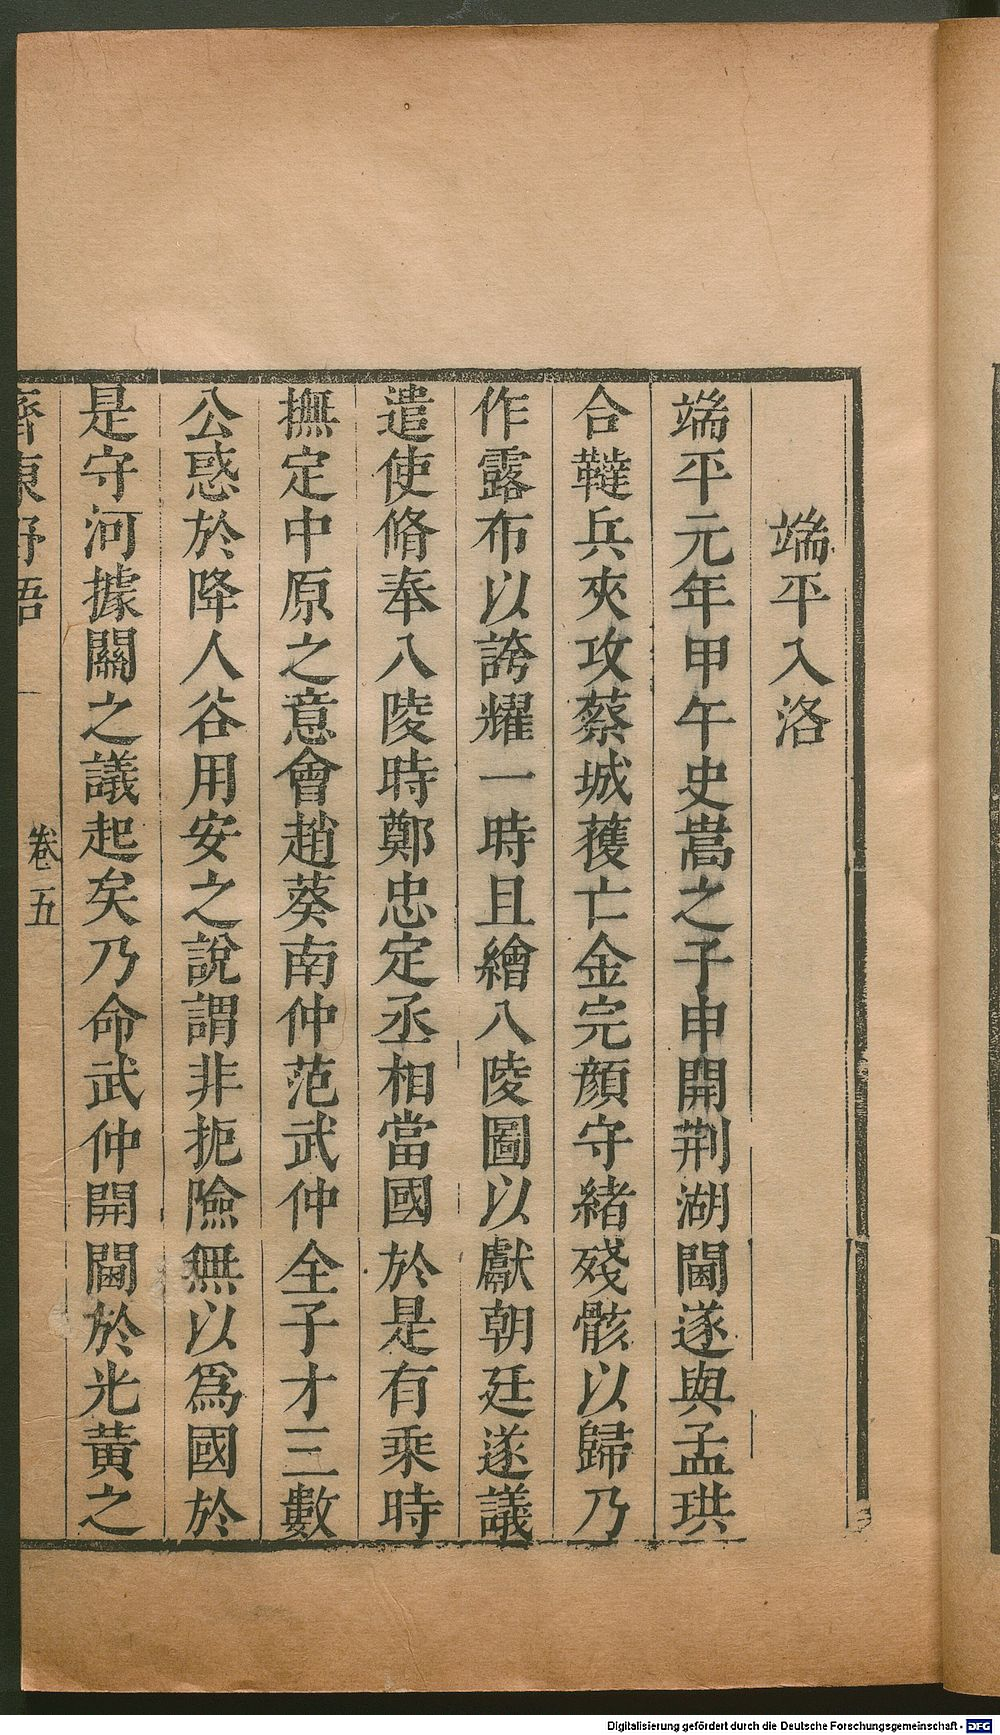 端平入洛
端平元年甲午史嵩之子申開荆湖閫遂與孟珙
合韃兵夾攻蔡城蒦亡金完顔守緒殘骸以歸乃
作露布以誇耀一時且繪八陵圖以獻朝廷遂議
遣使脩奉八陵時鄭忠定丞相當國於是有乘時
撫定中原之意會趙葵南仲范武仲全子才三數
公惑於降人谷用安之說謂非扼險無以爲國於
是守河據關之議起矣乃命武仲開閫於光黃之
齊東野語
卷五
Digitalisierung gefördert durch die Deutsche Forschungsgemeinschaft - DFG